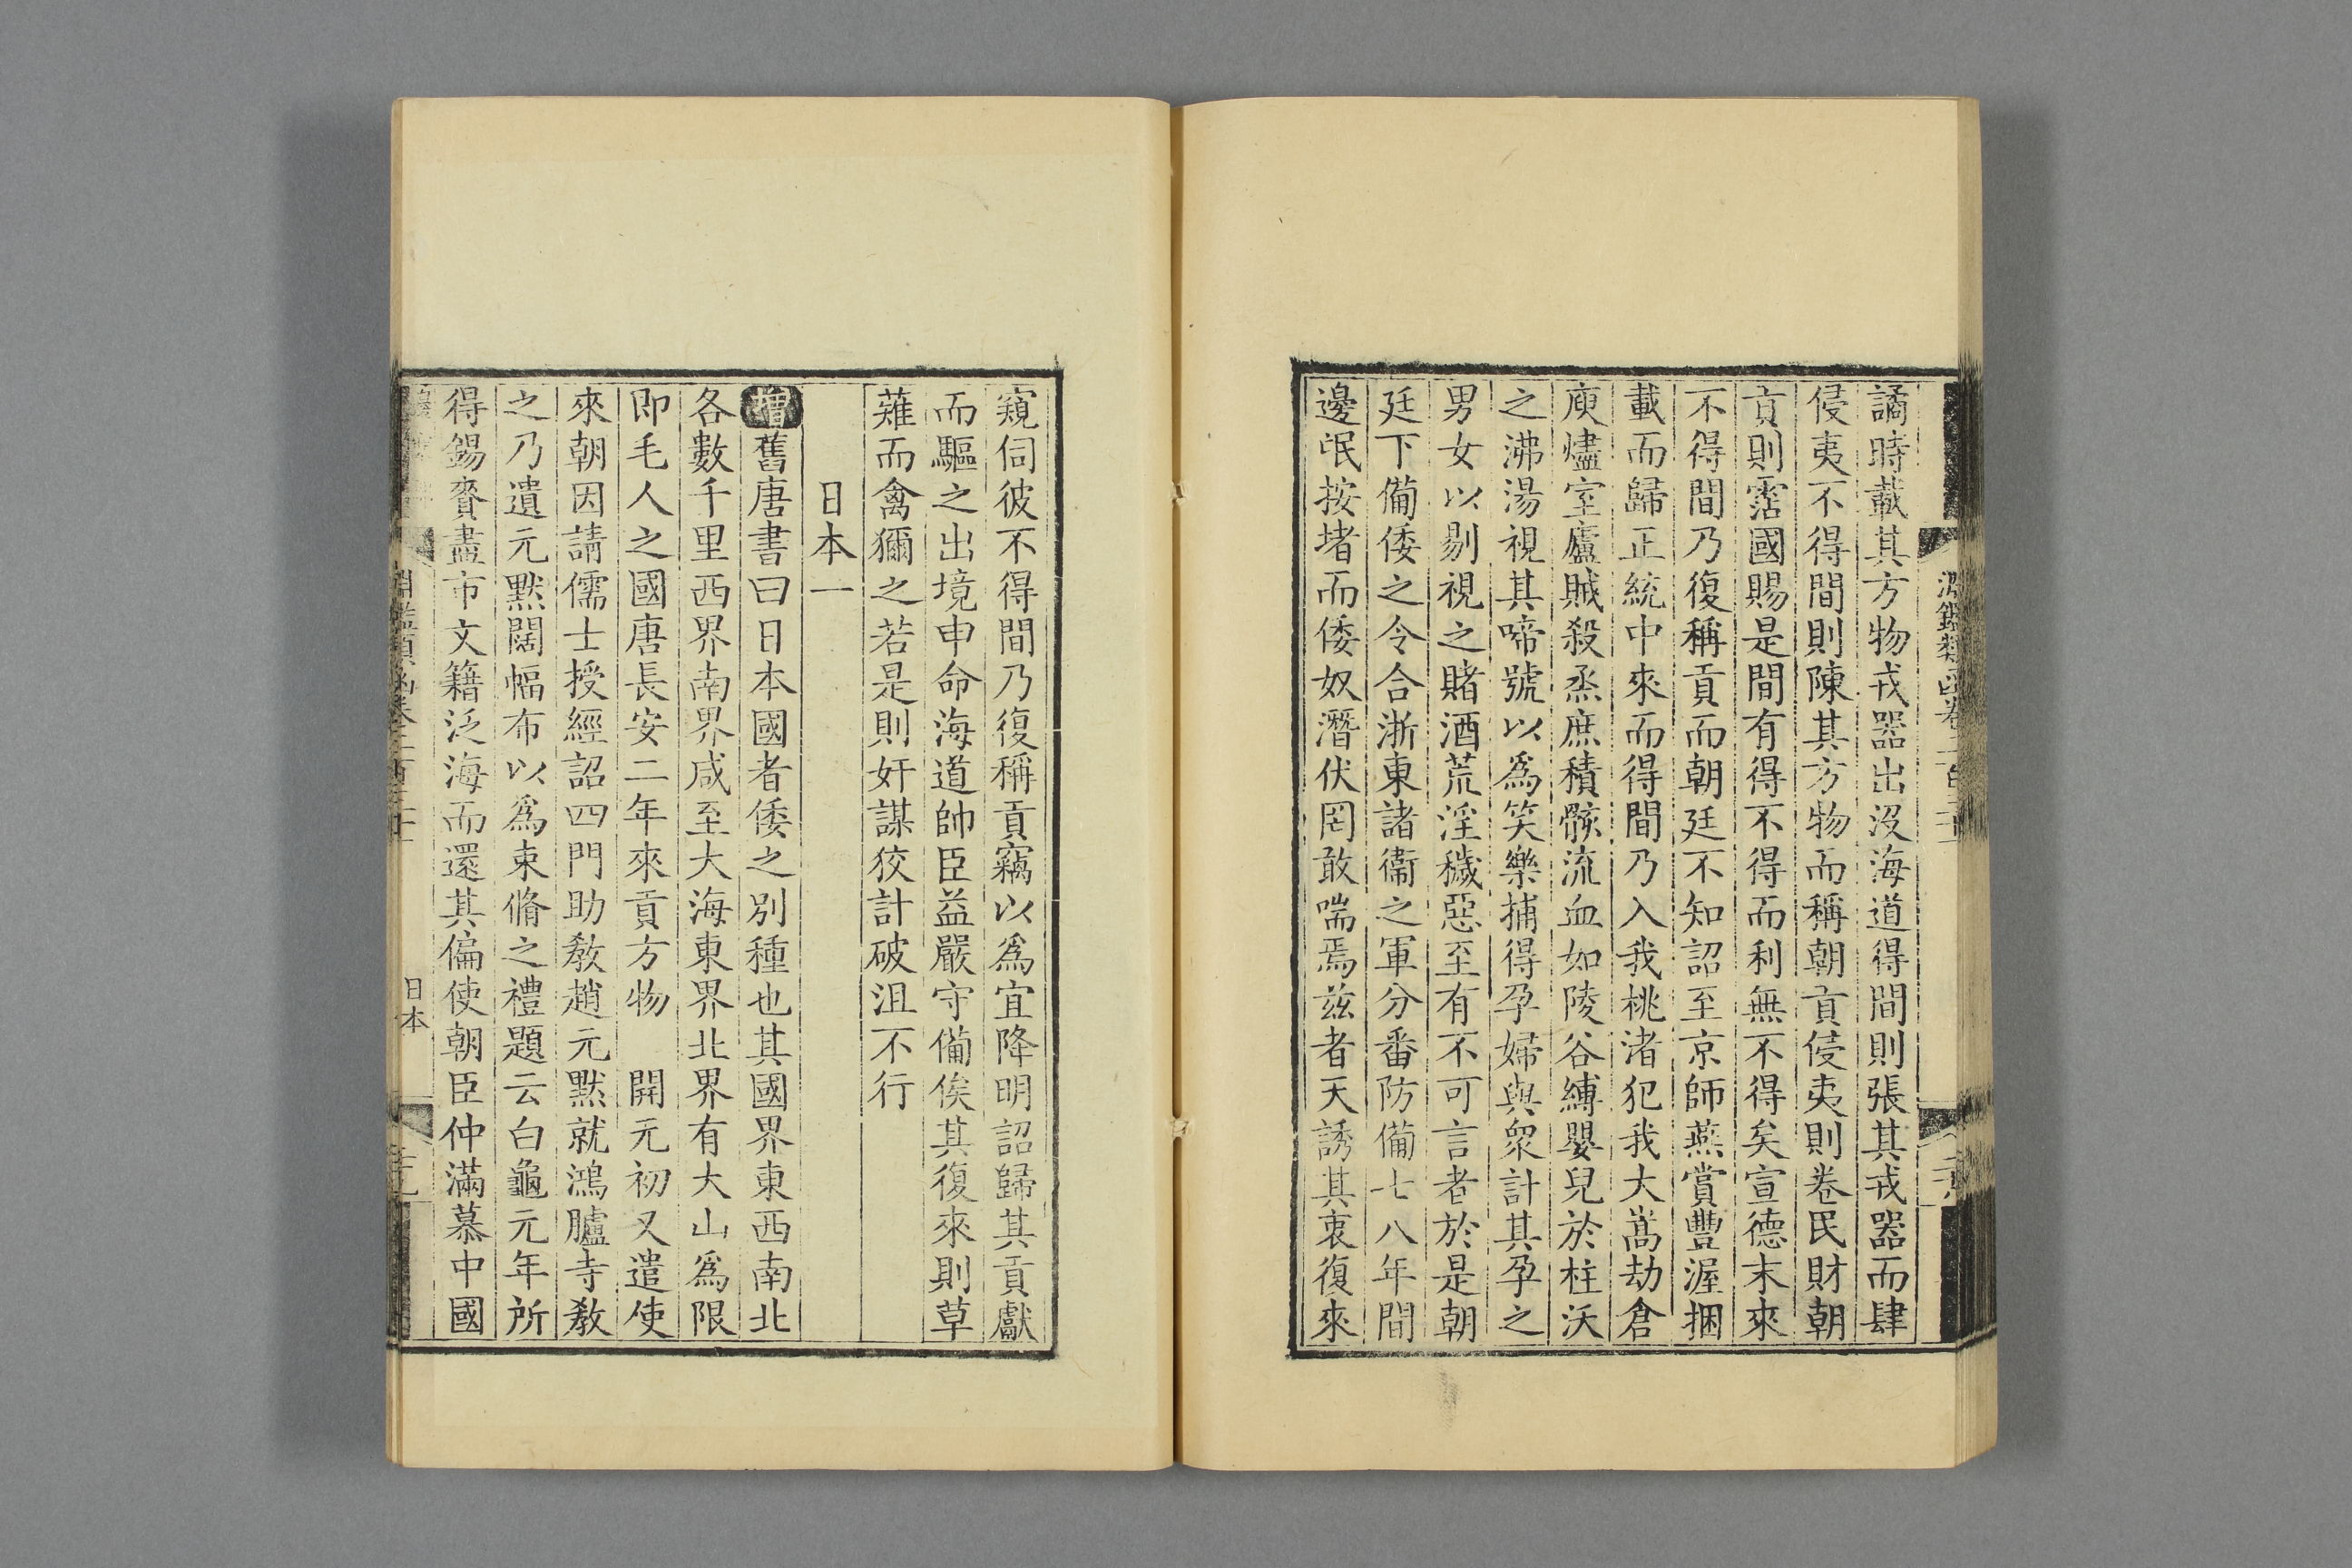 譎時載其方物戎器出沒海道得間則張其戎器而肆
侵夷不得間則陳其方物而稱朝貢侵夷則卷民財朝
貢則霑國賜是間有得不得而利無不得矣宣德末來
不得間乃復稱貢而朝廷不知詔至京師燕賞豐渥捆
載而歸正統中來而得間乃入我桃渚犯我大嵩劫倉
庾燼室廬賊殺烝庶積骸流血如陵谷縛嬰兒於柱沃
之沸湯視其啼號以爲笑樂捕得孕婦與衆計其孕之
男女以剔視之賭酒荒淫穢惡至有不可言者於是朝
廷下備倭之令合浙東諸衞之軍分番防備七八年間
邊氓按堵而倭奴潛伏罔敢喘焉兹者天誘其衷復來
窺伺彼不得間乃復稱貢竊以爲宜降明詔歸其貢獻
而驅之出境申命海道帥臣益嚴守備俟其復來則草
薙而禽獮之若是則奸謀狡計破沮不行
日本一
增舊唐書曰日本國者倭之别種也其國界東西南北
各數千里西界南界咸至大海東界北界有大山爲限
即毛人之國唐長安二年來貢方物 開元初又遣使
來朝因請儒士授經詔四門助教趙元默就鴻臚寺教
之乃遺元默闊幅布以爲束脩之禮題云白龜元年所
得錫賚盡市文籍泛海而還其偏使朝臣仲滿慕中國
淵鑑類函卷二百三十一
日本